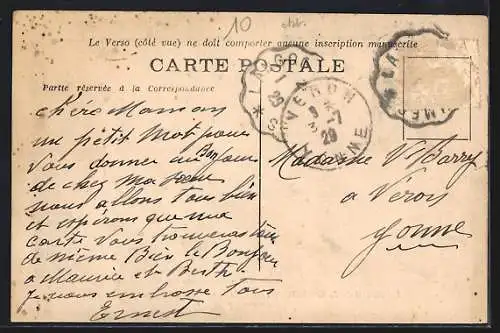 10
Le Verso (côté vue) ne doit comporter aucune inscription manuscrite
CARTE POSTALE
Partie réservée à la Correspondance
chère Maman
un petit mot pour
vous donner un Bonjour
de chez ma sœur
nous allons tous bien
et espérons que ma
carte vous trouveras tous
de même Bien le Bonjour
a Maurice et Berthe
je vous embrasse tous
Ernest
VERON
YONNE
Madame V Barry
a Veron
Yonne